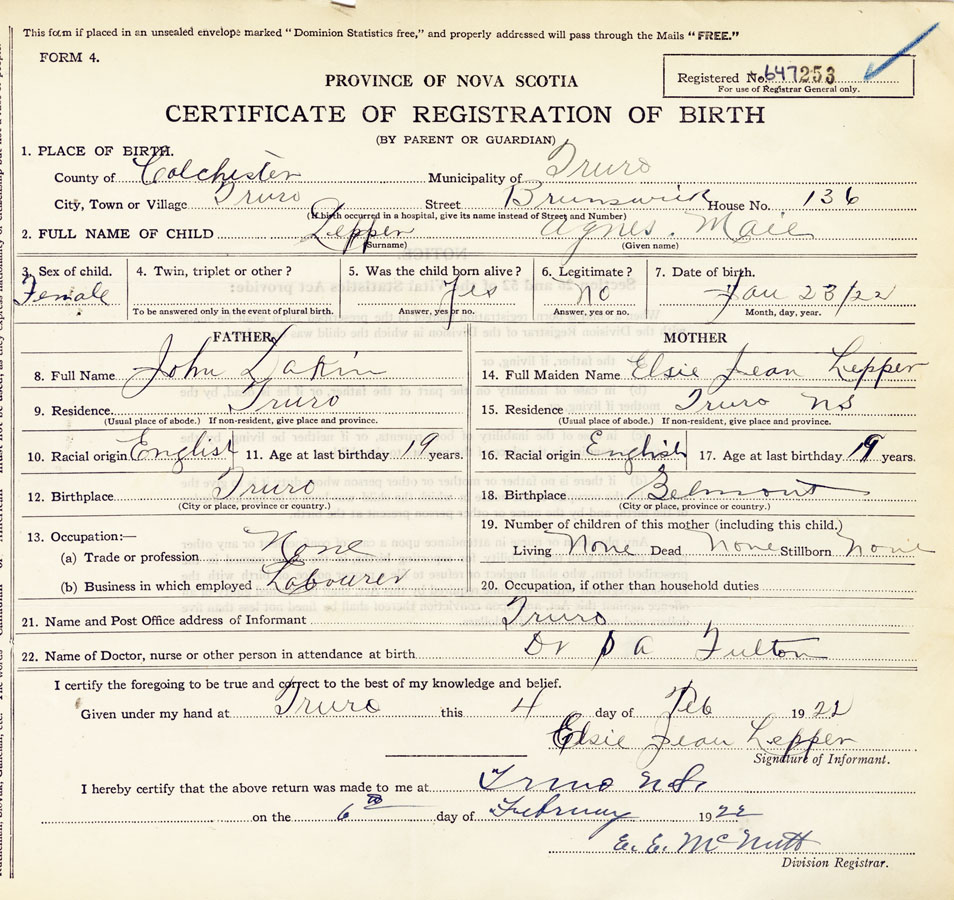 This form if placed in an unsealed envelope marked "Dominion Statistics free," and properly addressed will pass through the Mails "FREE."
FORM 4.
PROVINCE OF NOVA SCOTIA
Registered No. 647253
For use of Registrar General only.
CERTIFICATE OF REGISTRATION OF BIRTH
(BY PARENT OR GUARDIAN)
1. PLACE OF BIRTH.
County of Colchester Municipality of Truro
City, Town or Village Truro Street Brunswick House No. 136
(If birth occurred in a hospital, give its name instead of Street and Number)
2. FULL NAME OF CHILD Lepper Agnes. Maie
(Surname) (Given name)
3. Sex of child. 4. Twin, triplet or other? 5. Was the child born alive? 6. Legitimate? 7. Date of birth.
Female Yes No Jan 23/22
To be answered only in the event of plural birth. Answer, yes or no. Answer, yes or no. Month, day, year.
FATHER MOTHER
8. Full Name John Lakin 14. Full Maiden Name Elsie Jean Lepper
9. Residence. Truro 15. Residence Truro NS
(Usual place of abode.) If non-resident, give place and province. (Usual place of abode.) If non-resident, give place and province.
10. Racial origin English 11. Age at last birthday 19 years. 16. Racial origin English 17. Age at last birthday 19 years.
12. Birthplace Truro 18. Birthplace Belmont
(City or place, province or country.) (City or place, province or country.)
13. Occupation:— 19. Number of children of this mother (including this child.)
(a) Trade or profession None Living None Dead None Stillborn None
(b) Business in which employed Labourer 20. Occupation, if other than household duties
21. Name and Post Office address of Informant Truro
22. Name of Doctor, nurse or other person in attendance at birth Dr A Fulton
I certify the foregoing to be true and correct to the best of my knowledge and belief.
Given under my hand at Truro this 4 day of Feb 1922
Elsie Jean Lepper
Signature of Informant.
I hereby certify that the above return was made to me at Truro N.S.
on the 6th day of February 1922
E. E. McNutt
Division Registrar.